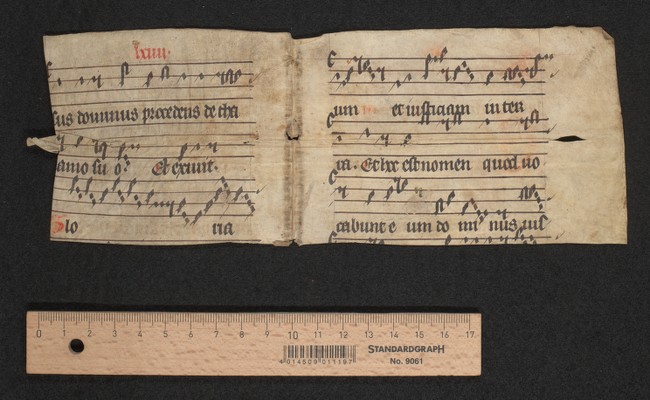 lxiiii.
sus dominus procedens de tha
amo su o. Et exiuit.
Glo ria
um et iusticiam in ter
ra. Et hoc est nomen quod uo
cabunt e um do mi nus ius
0 1 2 3 4 5 6 7 8 9 10 11 12 13 14 15 16 17
4 014509 011197
STANDARDGRAPH
No. 9061